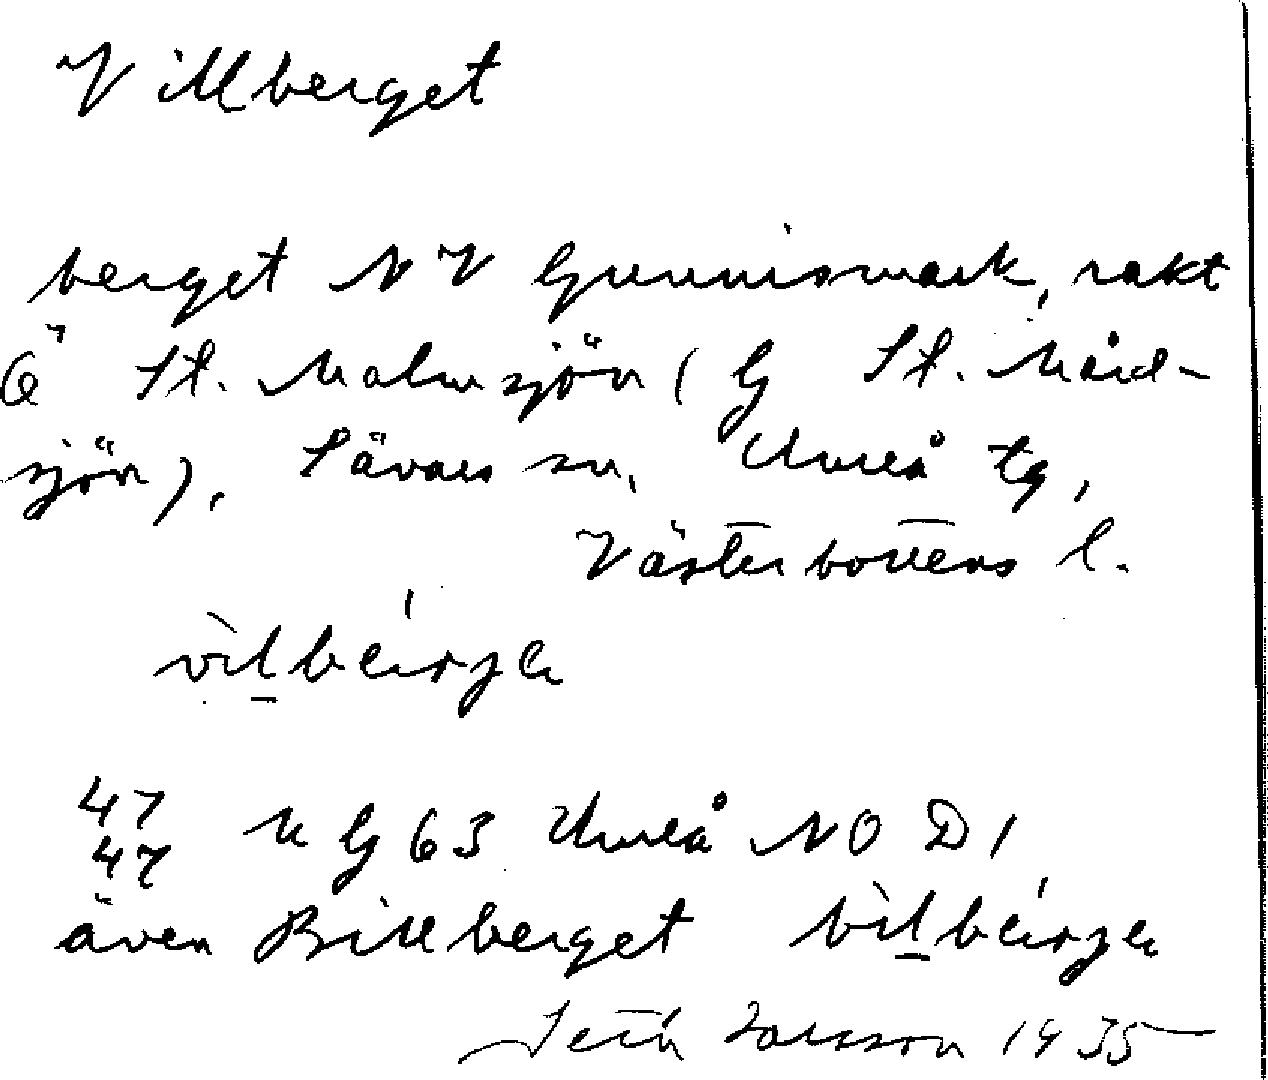 Villberget
berget NV Gunnismark, rakt
Ö St. Malmsjön (G St. Mård-
sjön), Sävars sn, Umeå tg,
Västerbottens l.
47
47 K G 63 Umeå NO D1
även Billberget
Seth Larsson 1935